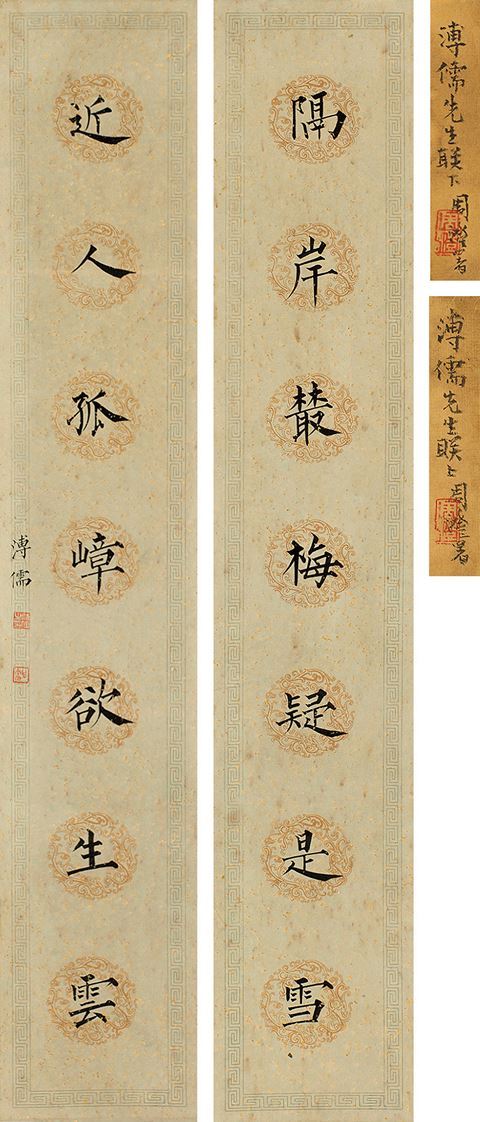 隔岸叢梅疑是雪
近人孤嶂欲生雲
溥儒
溥儒先生联上 周澄署
溥儒先生联下 周澄署